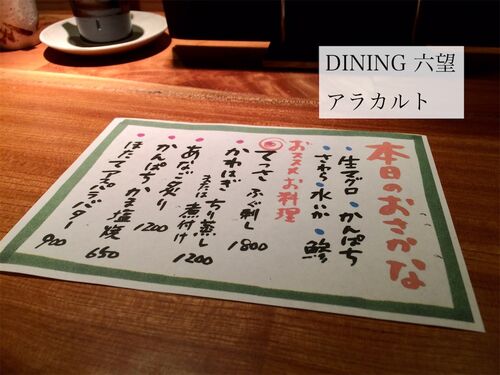 DINING 六望
アラカルト
本日のおさかな
生マグロ・かんぱち
・さわら・水いか・鯵
おススメお料理
てっさ ふぐ刺し 1800
かわはぎ ちり蒸し
または 煮付け 1200
あなご炙り 1200
かんぱちかま塩焼 650
ほたてアスパラバター 900